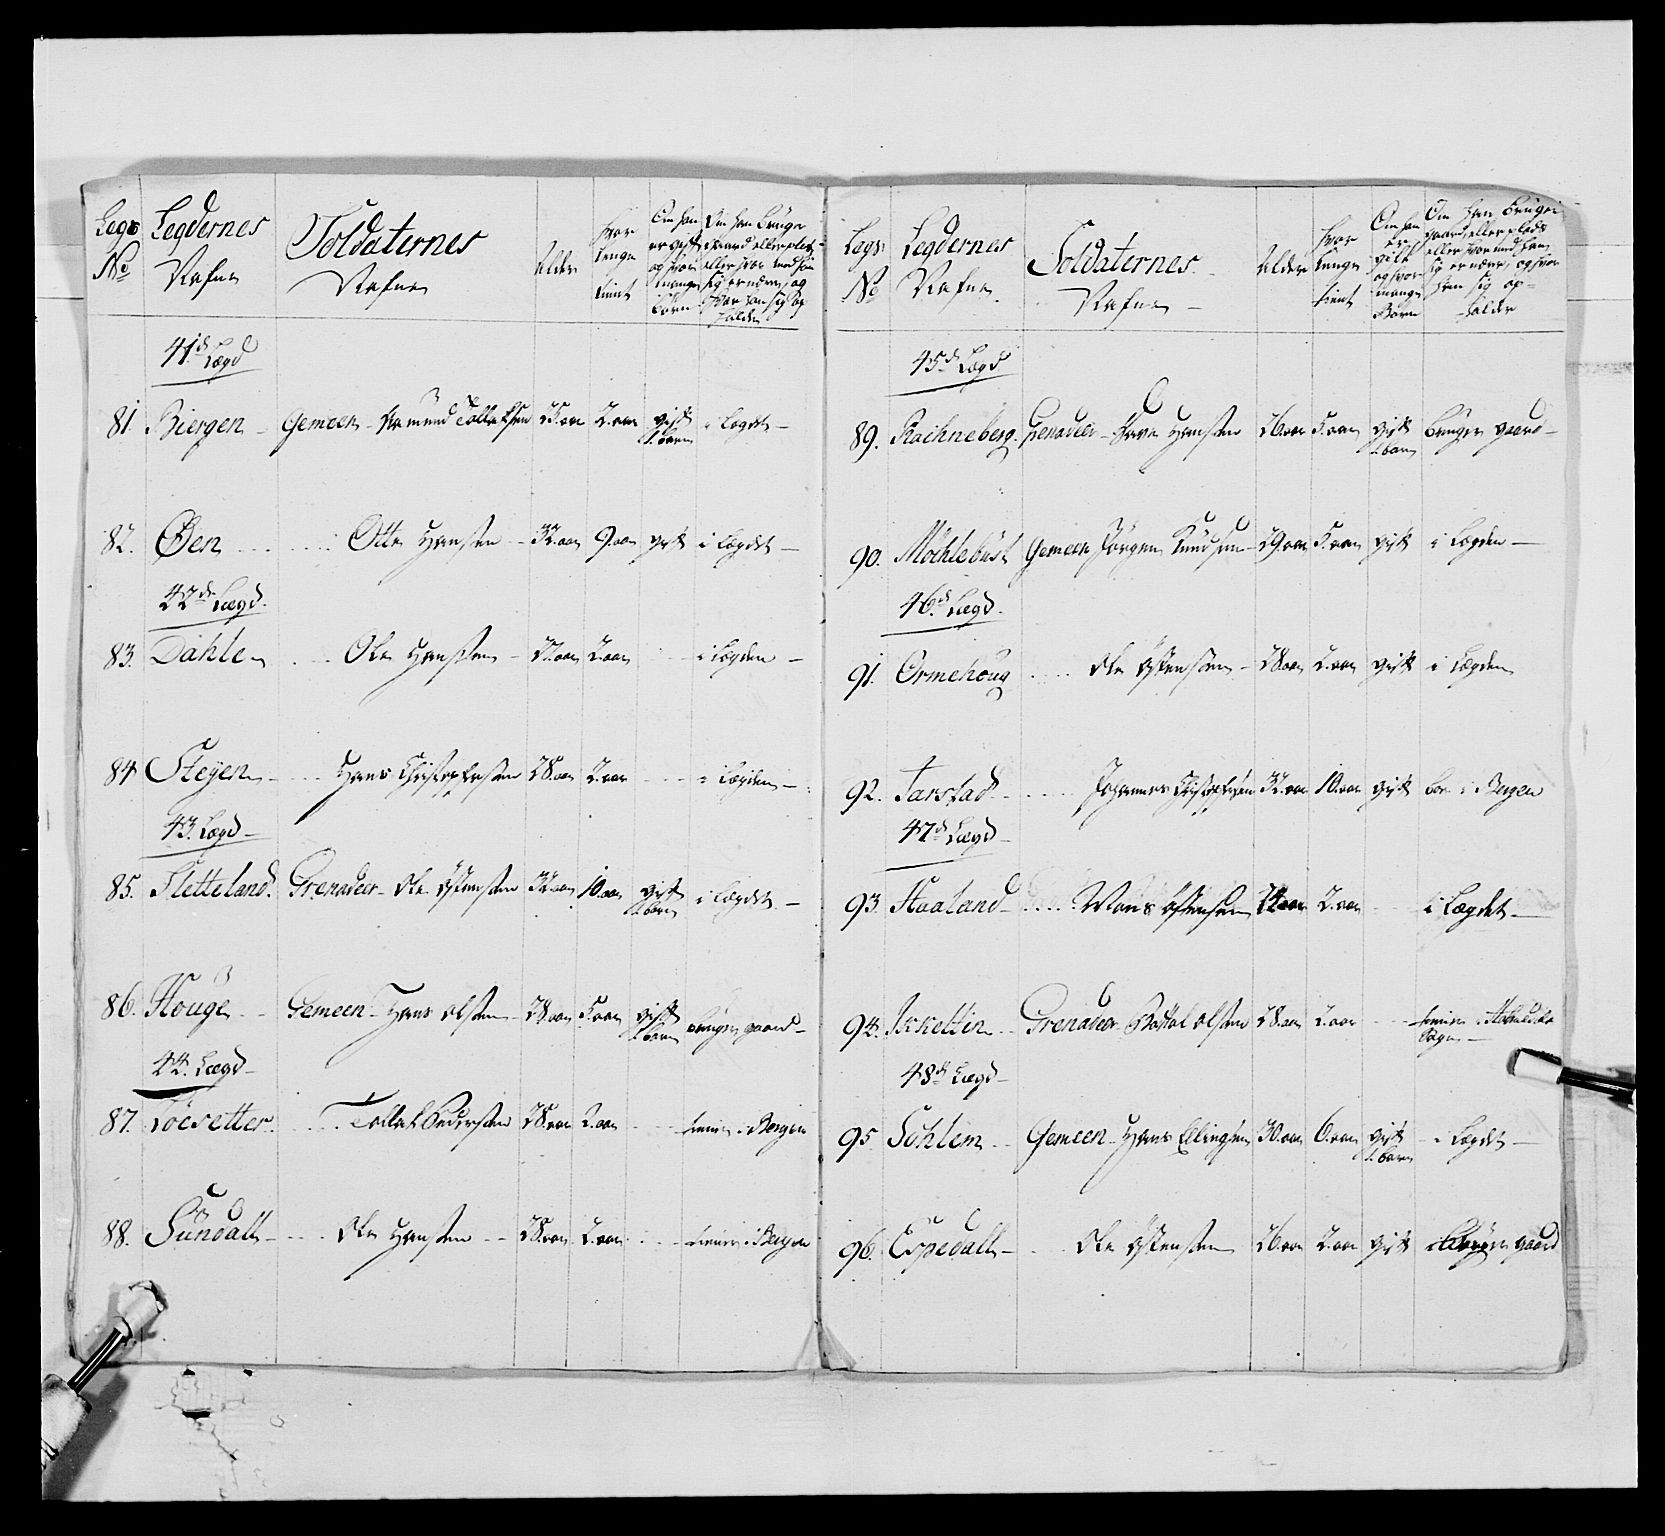 Legs No
Legdernes Nafne
Soldaternes Nafne
Alder
hvor lenge tient
Om han er gift og hvor mange Børn
Om han bruger gaard eller plads eller hvor med han sig ernærer, og hvor han sig opholder
41de Lægd
81. Biergen - Gemeen - Aamund Tollefsen 25 aar 2 aar gift 1 barn i Legdet -
82. Øen Otte Hansen - 32 aar 9 aar gift i Legdet -
42de Lægd.
83. Dahlen Ole Hansen - 27 aar 2 aar i Legden -
84 Steyen - Hans Christophersen 28 aar 2 aar i Legden -
43. Lægd -
85. Fletteland. Grenadeer - Ole Østensen 32 aar 10 aar gift 1 barn i Legdet -
86. Houge Gemeen - Hans Olsen - 28 aar 5 aar gift 1 barn bruger gaard -
44. Lægd -
87. Løesetter. Tollef Pedersen 28 aar 2 aar tiener i Bergen
88. Sundall - Ole Hansen - 28 aar 2 aar tiener i Bergen
Legs No
Legdernes Nafne.
Soldaternes Nafne -
Alder
hvor lenge tient
Om han er gift og hvor mange Børn
Om han bruger gaard, eller plads eller hvor med han sig ernærer, og hvor han sig opholder
45de Lægd
89. Rachneberg. Grenadeer - Hansen 26 aar 5 aar gift 1 barn bruger gaard -
90. Møchlebust Gemeen Jørgen Knudsen - 29 aar 5 aar gift i Legden -
46de Lægd.
91. Ormehoug Ole Østensen - 28 aar 2 aar gift i Legden
92. Tarstad Johannes Christophersen 32 aar 10 aar gift boe i Bergen
47de Lægd -
93. Haaland - Mons Østensen 2 aar i Legdet -
94. Isketting Grenadeer Olsen 28 aar 2 aar tiener i Sogn -
48de Lægd -
95. Sohlem Gemeen - Hans Ellingsen 30 aar 6 aar gift 1 barn i Legdet -
96. Espedall - Ole Østensen 26 aar 2 aar gift bruger gaard